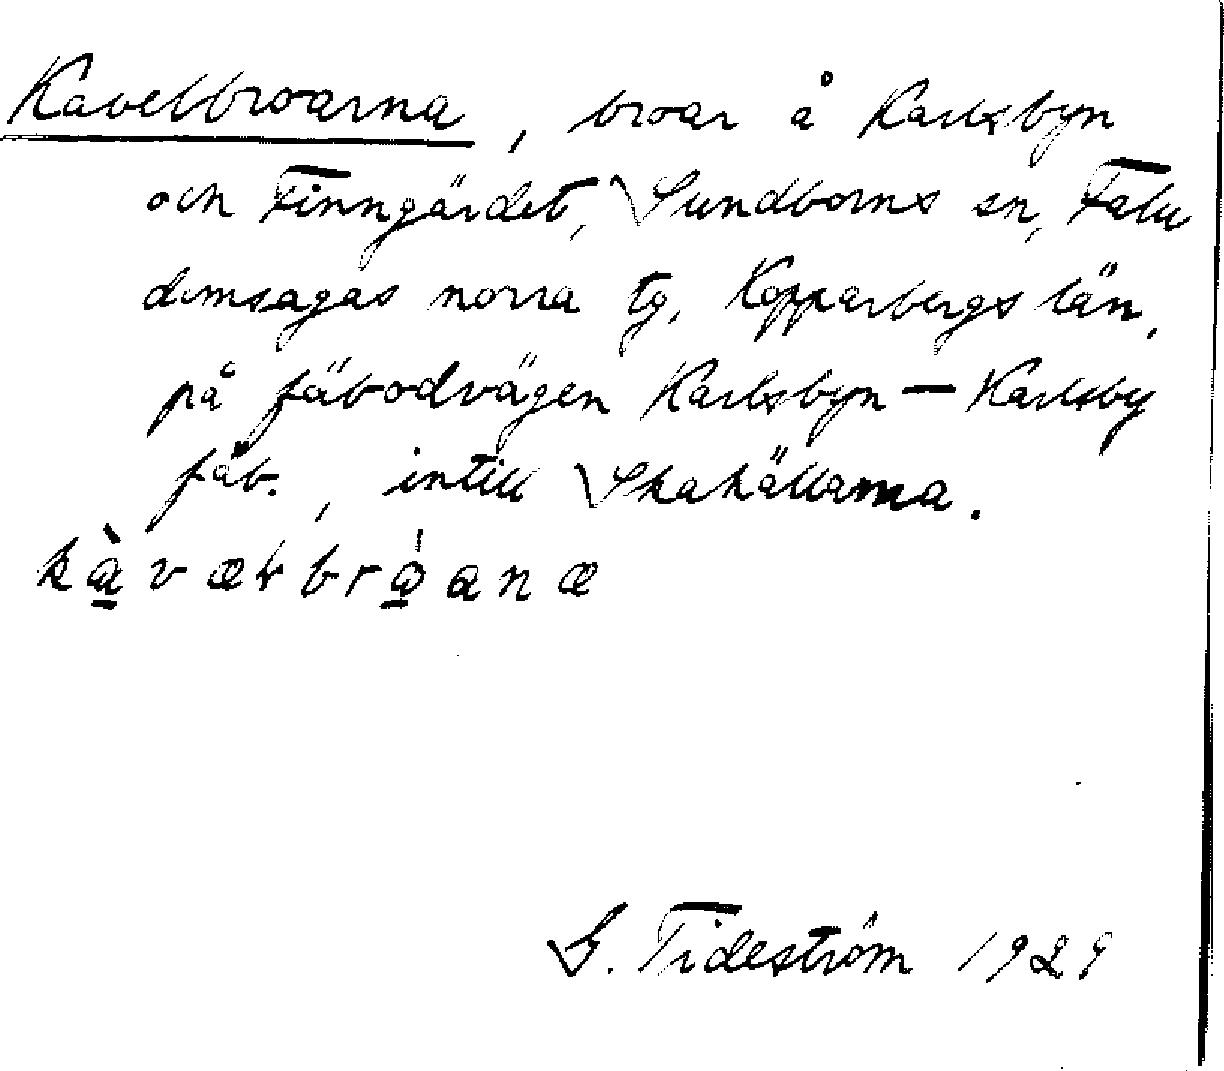 Kavelbroarna, broar å Karlsbyn
och Finngärdet, Sundborns sn, Falu
domsagas norra tg, Kopparbergs län,
på fäbodvägen Karlsbyn — Karlsby
fäb., intill Skahällarna.
G. Tideström 1929